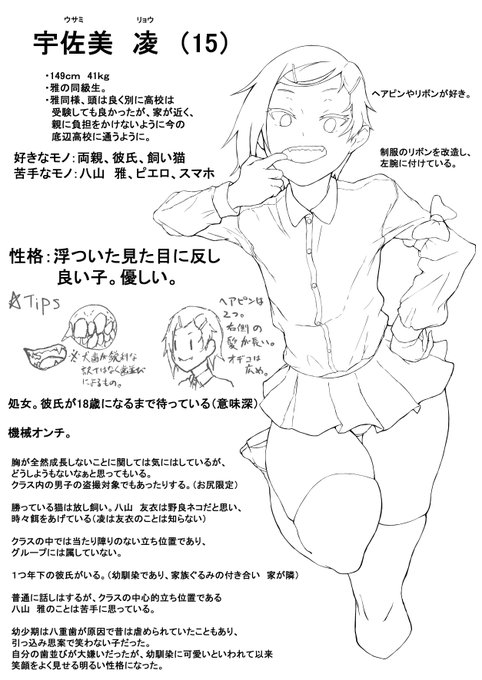 ウサミ リョウ
宇佐美 凌 (15)
・149cm 41kg
・雅の同級生。
・雅同様、頭は良く別に高校は
受験しても良かったが、家が近く、
親に負担をかけないように今の
底辺高校に通うように。
好きなモノ：両親、彼氏、飼い猫
苦手なモノ：八山 雅、ピエロ、スマホ
ヘアピンやリボンが好き。
制服のリボンを改造し、
左腕に付けている。
性格：浮ついた見た目に反し
良い子。優しい。
☆Tips
※犬歯が鋭利な
訳ではなく歯並び
によるもの。
ヘアピンは
2つ。
右側の
髪が長い。
オデコは
広め。
処女。彼氏が18歳になるまで待っている(意味深)
機械オンチ。
胸が全然成長しないことに関しては気にはしているが、
どうしようもないなぁと思ってもいる。
クラス内の男子の盗撮対象でもあったりする。(お尻限定)
勝っている猫は放し飼い。八山 友衣は野良ネコだと思い、
時々餌をあげている(凌は友衣のことは知らない)
クラスの中では当たり障りのない立ち位置であり、
グループには属していない。
1つ年下の彼氏がいる。(幼馴染であり、家族ぐるみの付き合い 家が隣)
普通に話しはするが、クラスの中心的立ち位置である
八山 雅のことは苦手に思っている。
幼少期は八重歯が原因で昔は虐められていたこともあり、
引っ込み思案で笑わない子だった。
自分の歯並びが大嫌いだったが、幼馴染に可愛いといわれて以来
笑顔をよく見せる明るい性格になった。